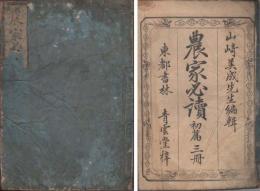 農家必讀
山崎美成先生編輯
農家必讀 初篇 三冊
東都書林 青雲堂梓